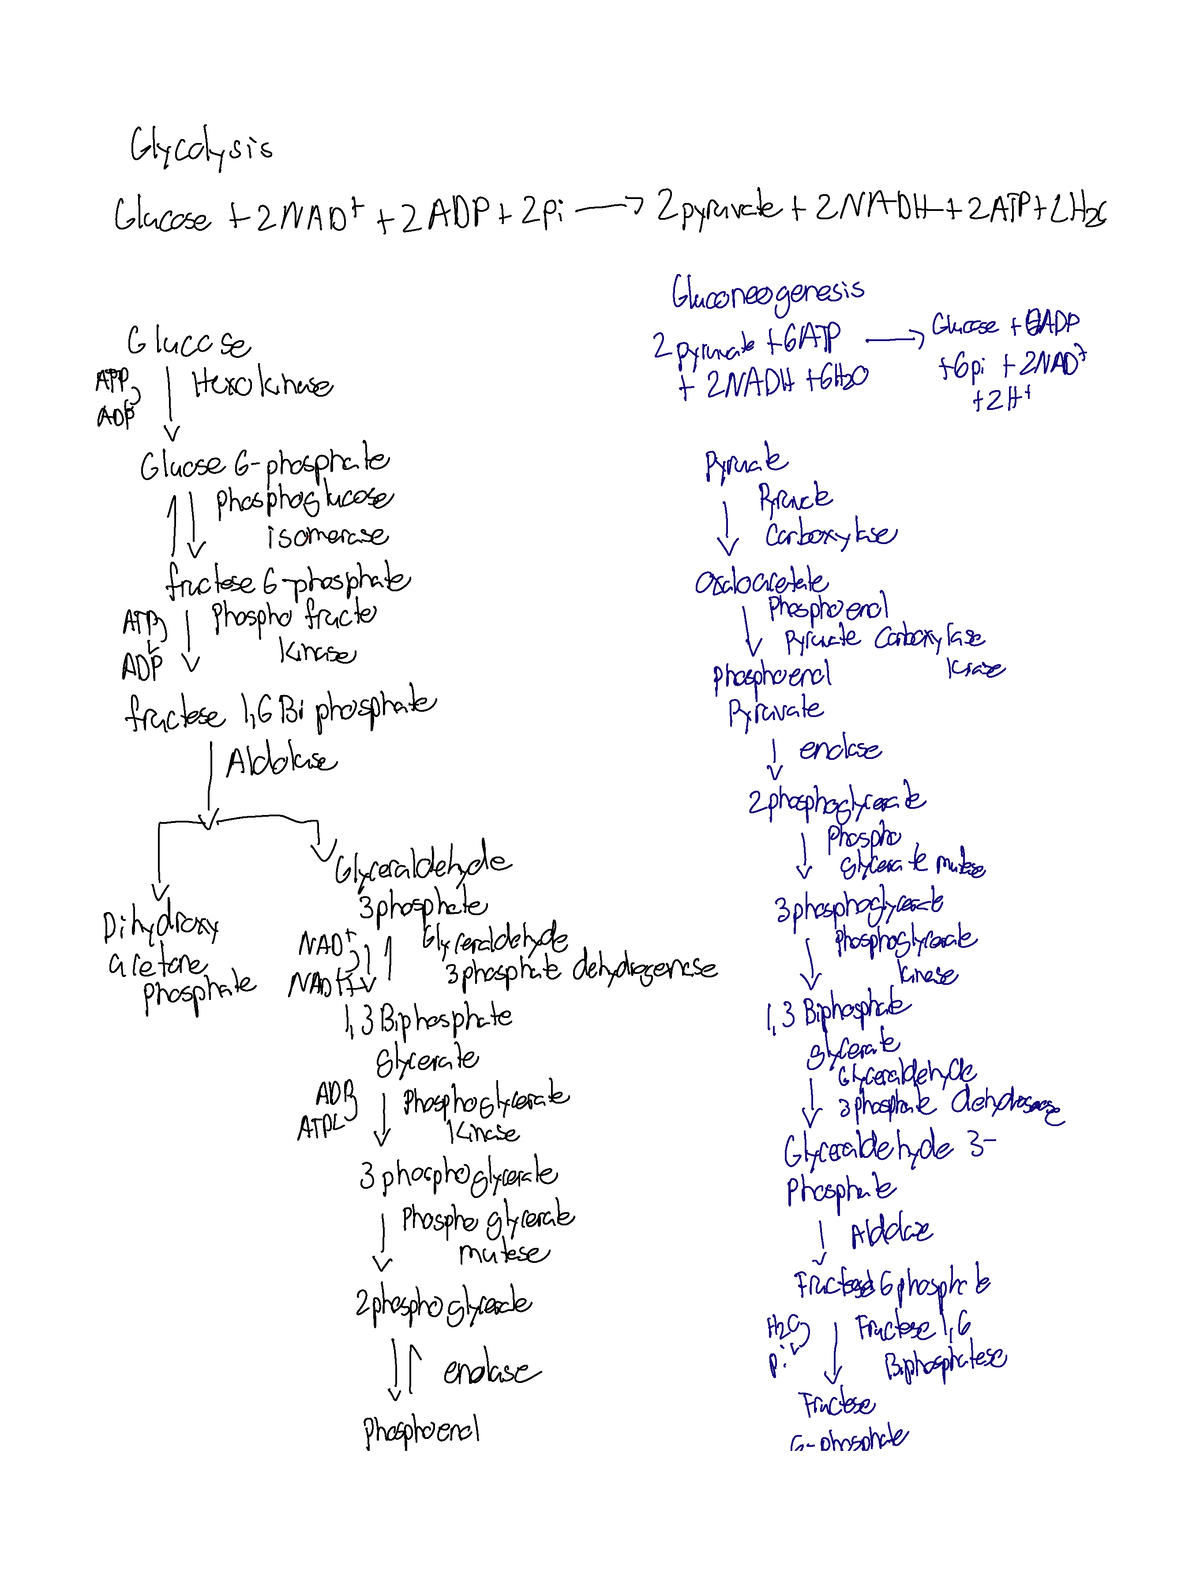 Glycolysis
Glucose + 2NAD+ + 2ADP + 2pi → 2pyruvate + 2NADH + 2ATP + 2H2O
Glucose
ATP
ADP
Hexokinase
Glucose 6-phosphate
phosphoglucose
isomerase
fructose 6-phosphate
ATP
ADP
Phospho fructo
Kinase
fructose 1,6 Bi phosphate
Aldolase
Dihydroxy
acetone
phosphate
Glyceraldehyde
3phosphate
NAD+
NADH
Glyceraldehyde
3phosphate dehydrogenase
1,3 Biphosphate
glycerate
ADP
ATP
Phosphoglycerate
Kinase
3 phosphoglycerate
Phospho glycerate
mutase
2phosphoglycerate
enolase
Phosphoenol
Gluconeogenesis
2 pyruvate + 6ATP → Glucose + 6ADP
+ 2NADH + 6H2O
+6pi + 2NAD+
+2H+
Pyruvate
Pyruvate
Carboxylase
Oxaloacetate
Phosphoenol
Pyruvate Carboxylase
Kinase
Phosphoenol
Pyruvate
enolase
2phosphoglycerate
Phospho
glycerate mutase
3phosphoglycerate
Phosphoglycerate
kinase
1,3 Biphosphate
glycerate
Glyceraldehyde
3phosphate dehydrogenase
Glyceraldehyde 3-
Phosphate
Aldolase
Fructose 6phosphate
H2O
pi
Fructose 1,6
Biphosphatase
Fructose
6-phosphate